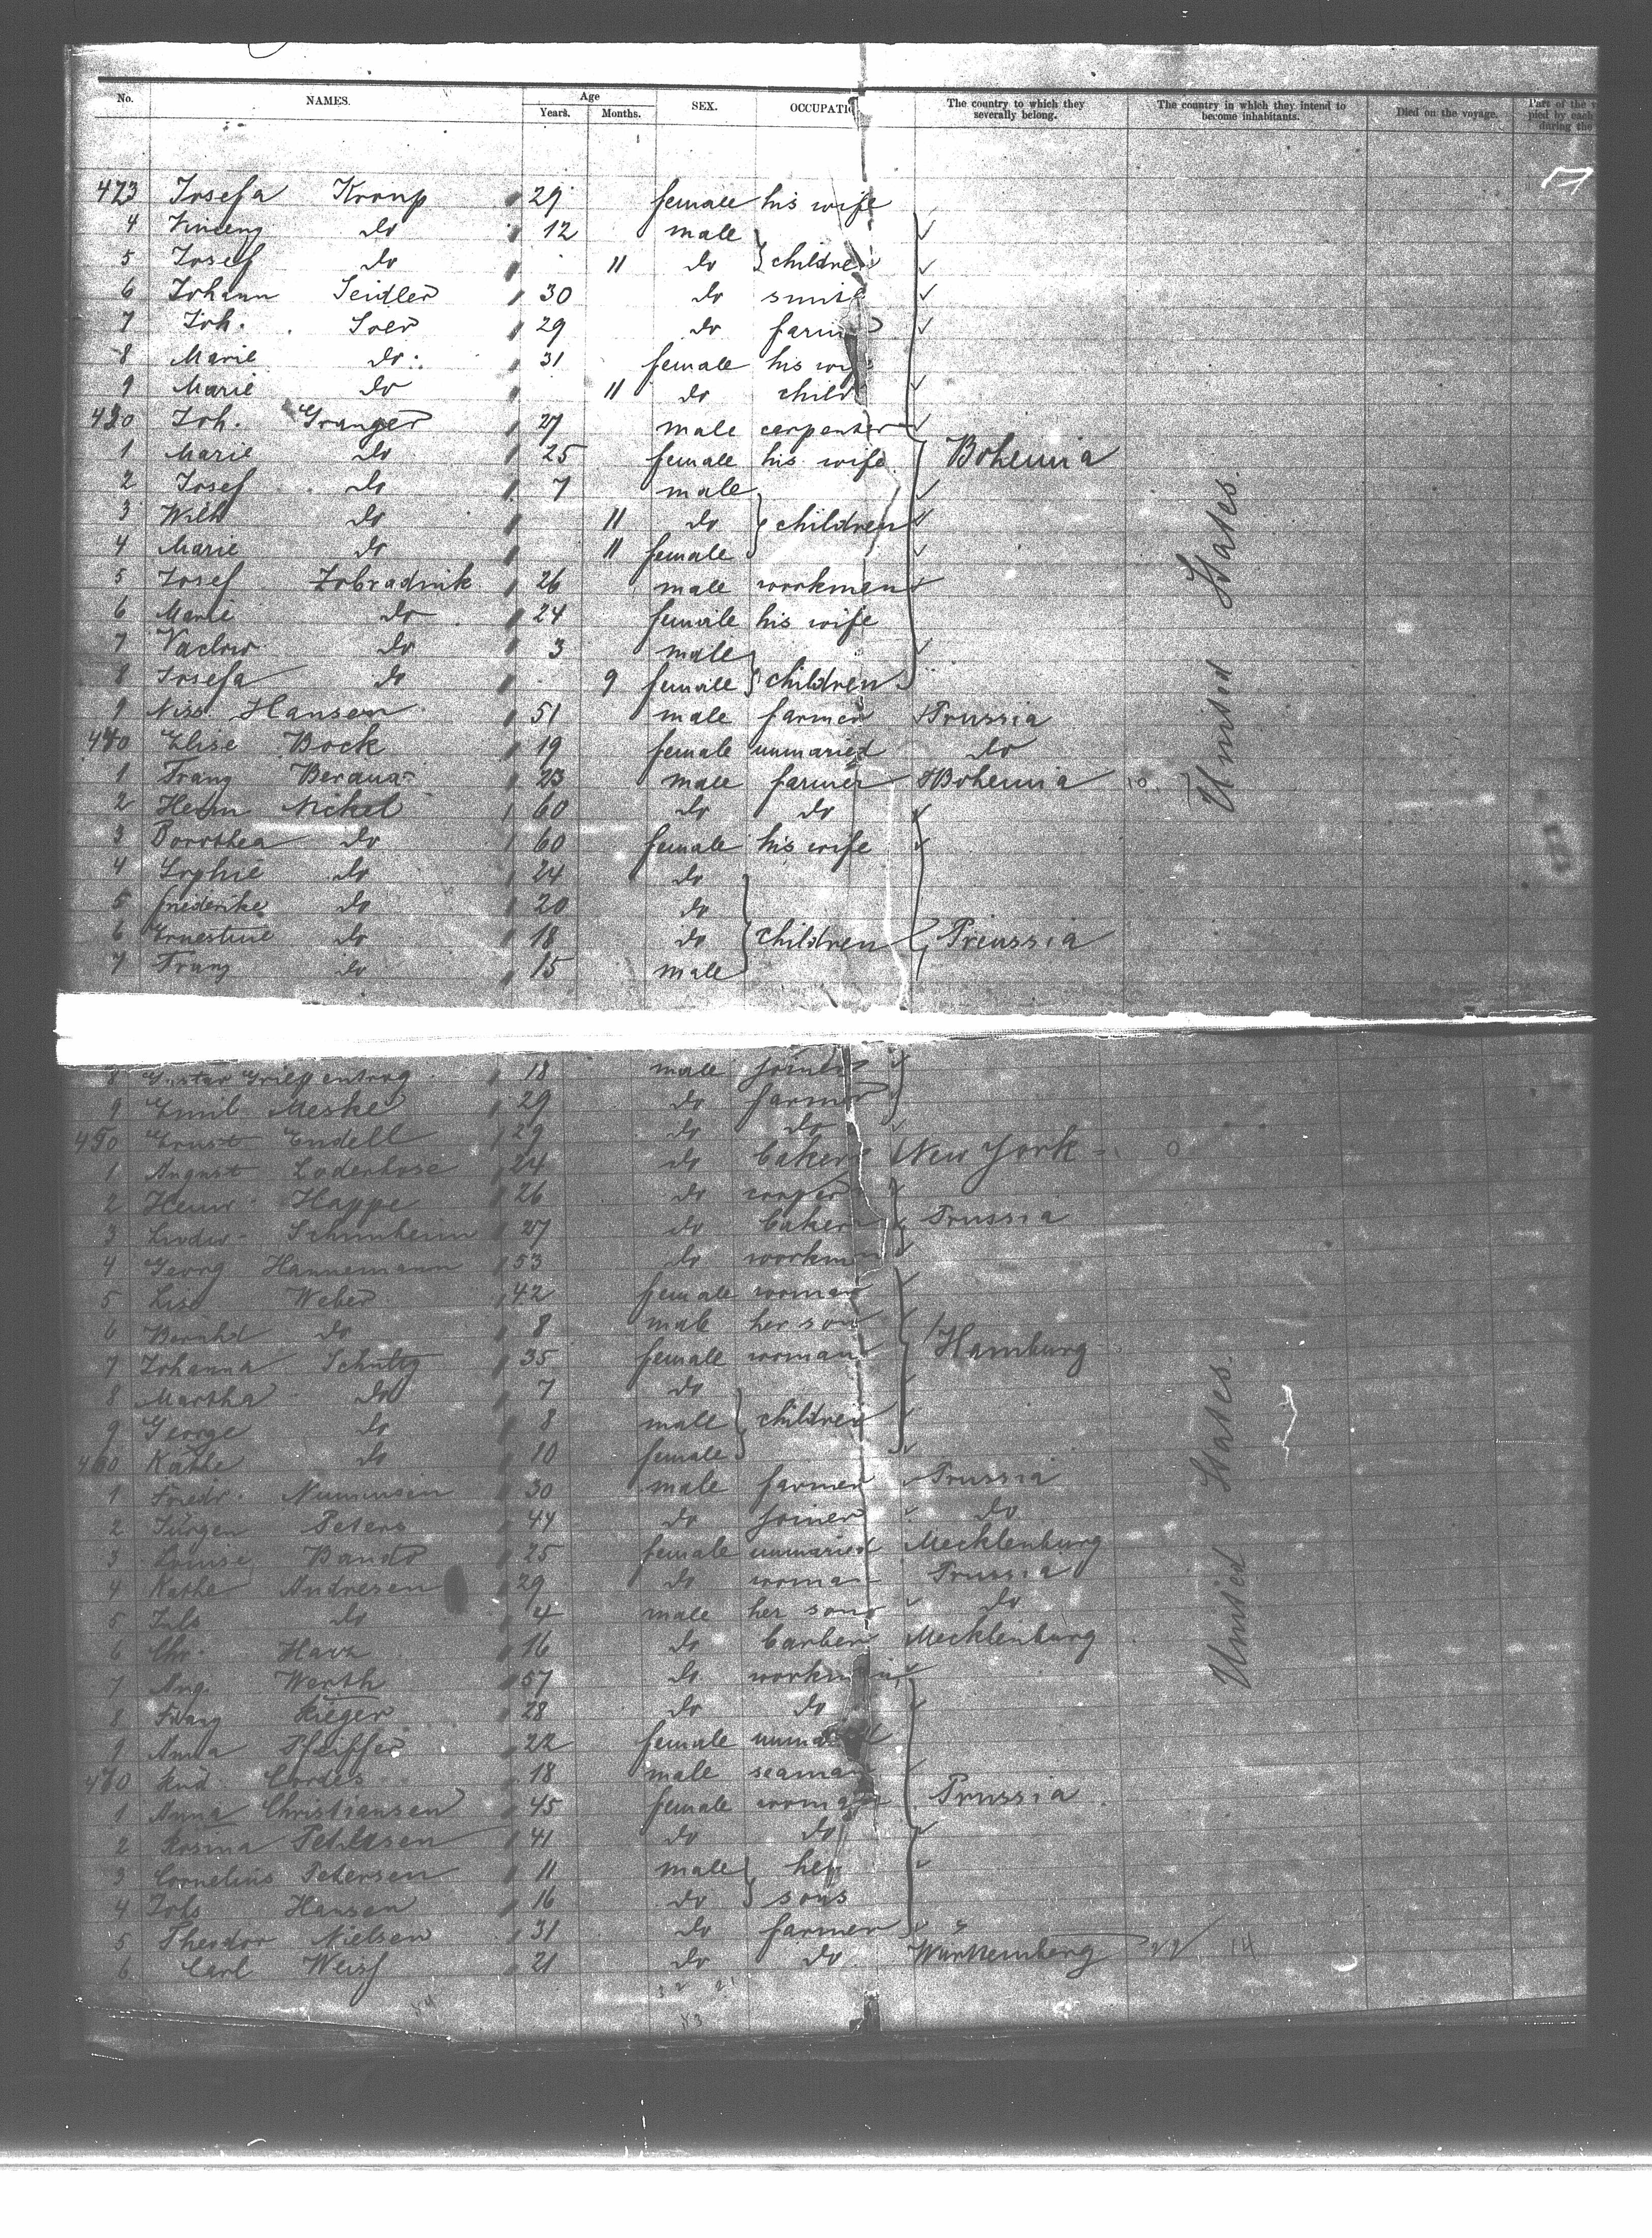 No. NAMES. Age Years. Months. SEX. OCCUPATIO The country to which they severally belong. The country in which they intend to become inhabitants. Died on the voyage. Part of the v pied by each during the
423 Josefa Kroup 29 female his wife
4 Vincenz do 12 male
5 Josef do 11 do } children
6 Johann Seidler 30 do smit
7 Joh. Soer 29 do farm
8 Marie do. 31 female his wif
9 Marie do 11 do child
430 Joh. Granger 27 male carpenter
1 Marie do 25 female his wife Bohemia
2 Josef do 7 male
3 Wilh do 11 do } children
4 Marie do 11 female
5 Josef Zobradnik 26 male workmen
6 Marie do 24 female his wife
7 Vaclav do 3 male
8 Josefa do 9 female } children
9 Niss Hansen 51 male farmer Prussia
440 Elise Bock 19 female unmaried do
1 Franz Beraua 23 male farmer Bohemia
2 Henr Nickel 60 do do
3 Dorothea do 60 female his wife
4 Sophie do 24 do
5 Friederike do 20 do
6 Ernestine do 18 do } children Preussia
7 Franz do 15 male
United States.
8 Gustav Griep entrog 18 male joiner
9 Emil Meske 29 do farmer
450 Ernst Endell 29 do do
1 August Loderhose 24 do baker New York
2 Henr Happe 26 do cooper
3 Ludw Schunheim 27 do baker Prussia
4 Georg Hannemann 53 do workm
5 Lise Weber 42 female woman
6 Bernhd do 8 male her son
7 Johanna Schultz 35 female woman Hamburg
8 Martha do 7 do
9 George do 8 male } children
460 Käthe do 10 female
1 Friedr. Nummsen 30 male farmer Prussia
2 Jürgen Peters 44 do joiner do
3 Louise Bando 25 female unmaried Mecklenburg
4 Kathe Andresen 29 do woman Prussia
5 do 4 male her son do
6 Chr. Harz 16 do barber Mecklenburg
7 Aug. Werth 57 do workman
8 Franz Rieger 28 do do
9 Anna Pfeiffer 22 female unma
470 Cordes 18 male seaman
1 Anna Christiansen 45 female woman Prussia
2 Rosina Petersen 41 do do
3 Cornelius Petersen 11 male } her
4 Hansen 16 do } sons
5 Theodor Nielsen 31 do farmer "
6 Carl Weiss 21 do do Würtemberg 14
United States.